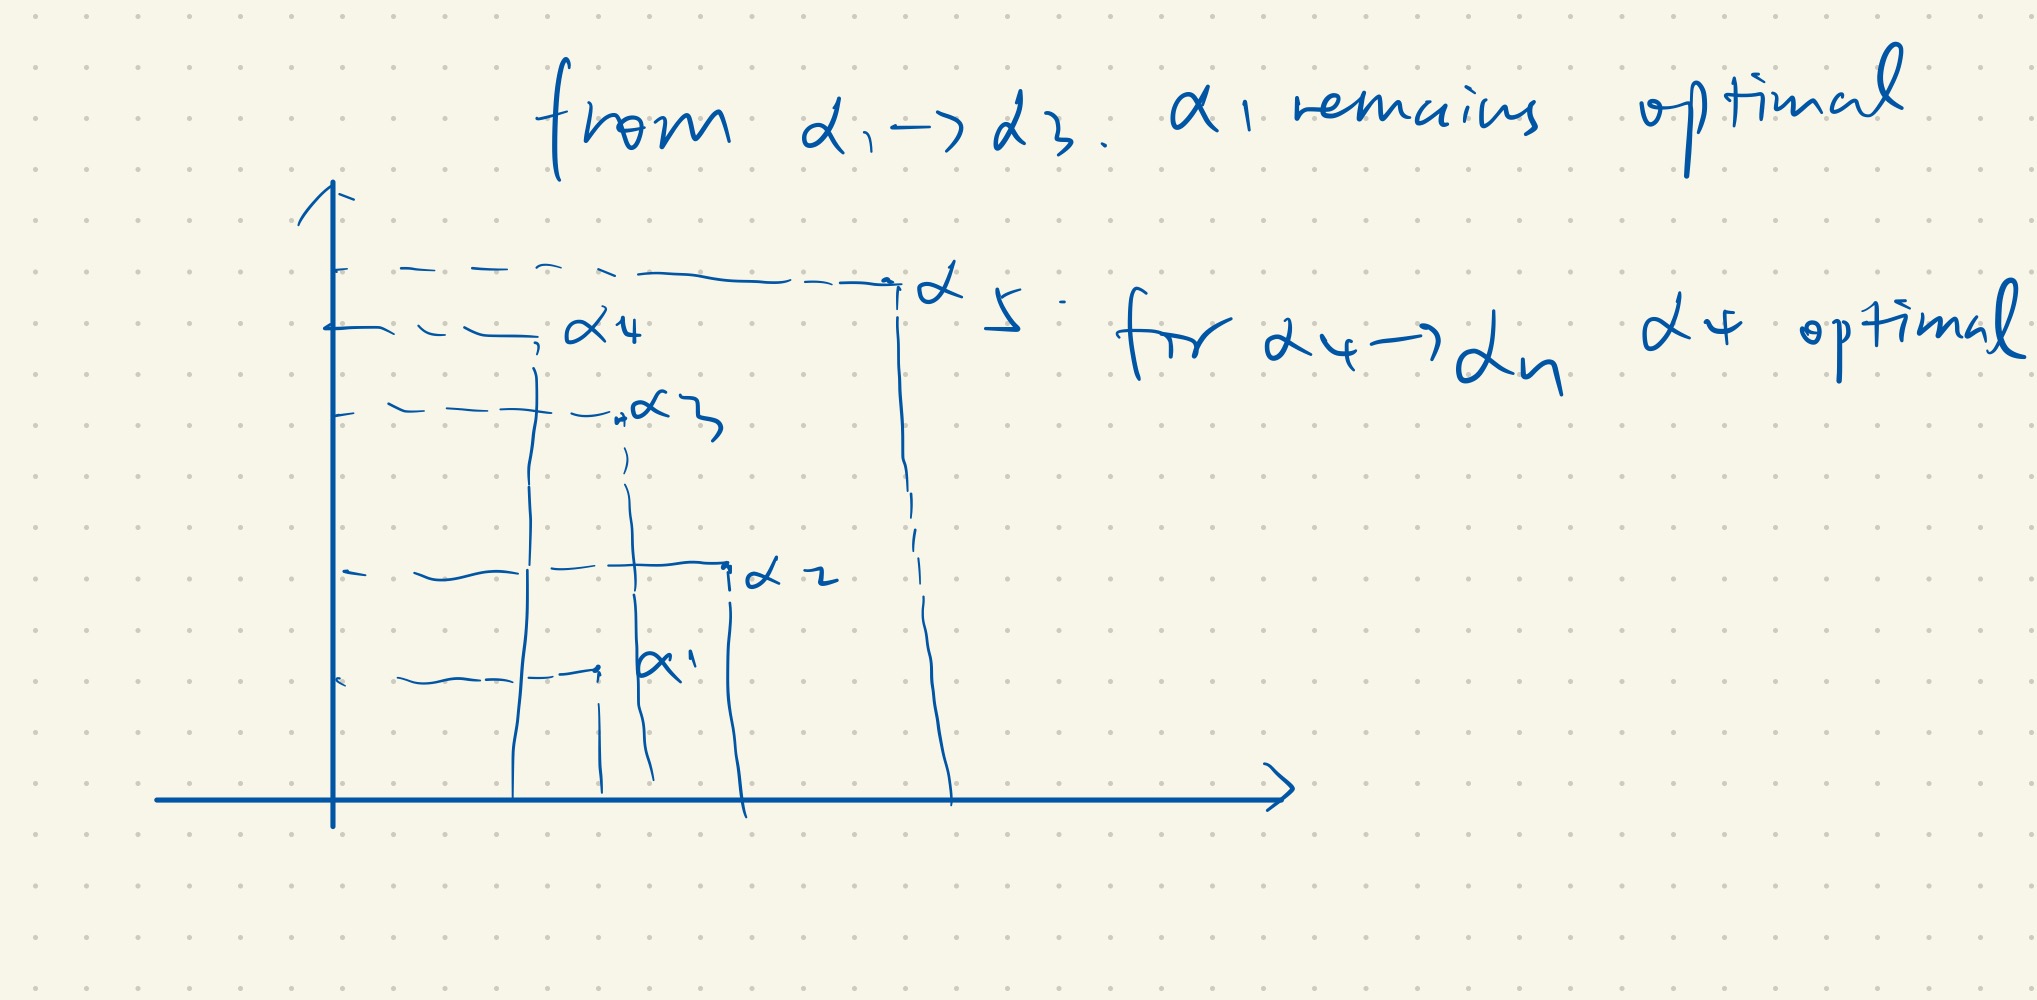 from α1 → α3. α1 remains optimal
α5
for α4 → αn α4 optimal
α4
α3
α2
α1